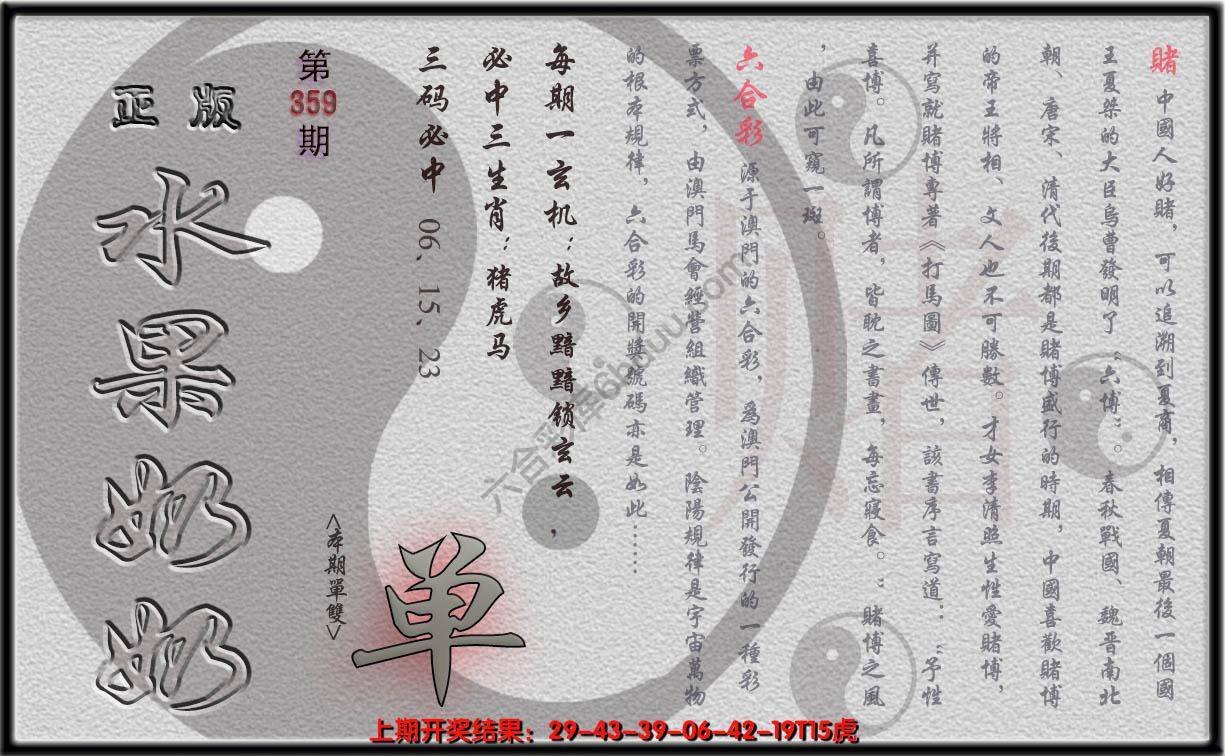 賭 中國人好賭，可以追溯到夏商，相傳夏朝最後一個國
王夏桀的大臣烏曹發明了“六博”。春秋戰國、魏晋南北
朝、唐宋、清代後期都是賭博盛行的時期，中國喜歡賭博
的帝王將相、文人也不可勝數。才女李清照生性愛賭博，
并寫就賭博專著《打馬圖》傳世，該書序言寫道：“予性
喜博。凡所謂博者，皆耽之書畫，每忘寢食。”賭博之風
，由此可窺一斑。
六合彩 源于澳門的六合彩，爲澳門公開發行的一種彩
票方式，由澳門馬會經營組織管理。陰陽規律是宇宙萬物
的根本規律，六合彩的開獎號碼亦是如此……
每期一玄机：故乡黯黯锁玄云，
必中三生肖：猪虎马
三码必中 06、15、23
第
359
期
正版
水果奶奶
<本期單雙>
单
賭
六合彩库6huuu.com
上期开奖结果：29-43-39-06-42-19T15虎